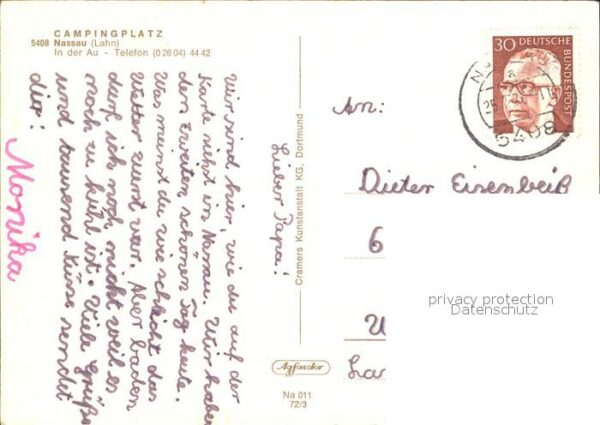 CAMPINGPLATZ
5408 Nassau (Lahn)
In der Au - Telefon (0 26 04) 44 42
Lieber Papa!
Wir sind hier, wie du auf der
Karte siehst in Nassau. Wir haben
den zweiten schönen Tag heute.
Was meinst du wie schlecht das
Wetter zuerst war. Aber baden
darf ich noch nicht weil es
noch zu kühl ist. Viele Grüße
und tausend Küsse sendet
dir:
Monika
Cramers Kunstanstalt KG, Dortmund
Agfacolor
Na 011
72/3
30 DEUTSCHE
BUNDESPOST
5408
An:
Dieter Eisenbeiß
6
privacy protection
Datenschutz